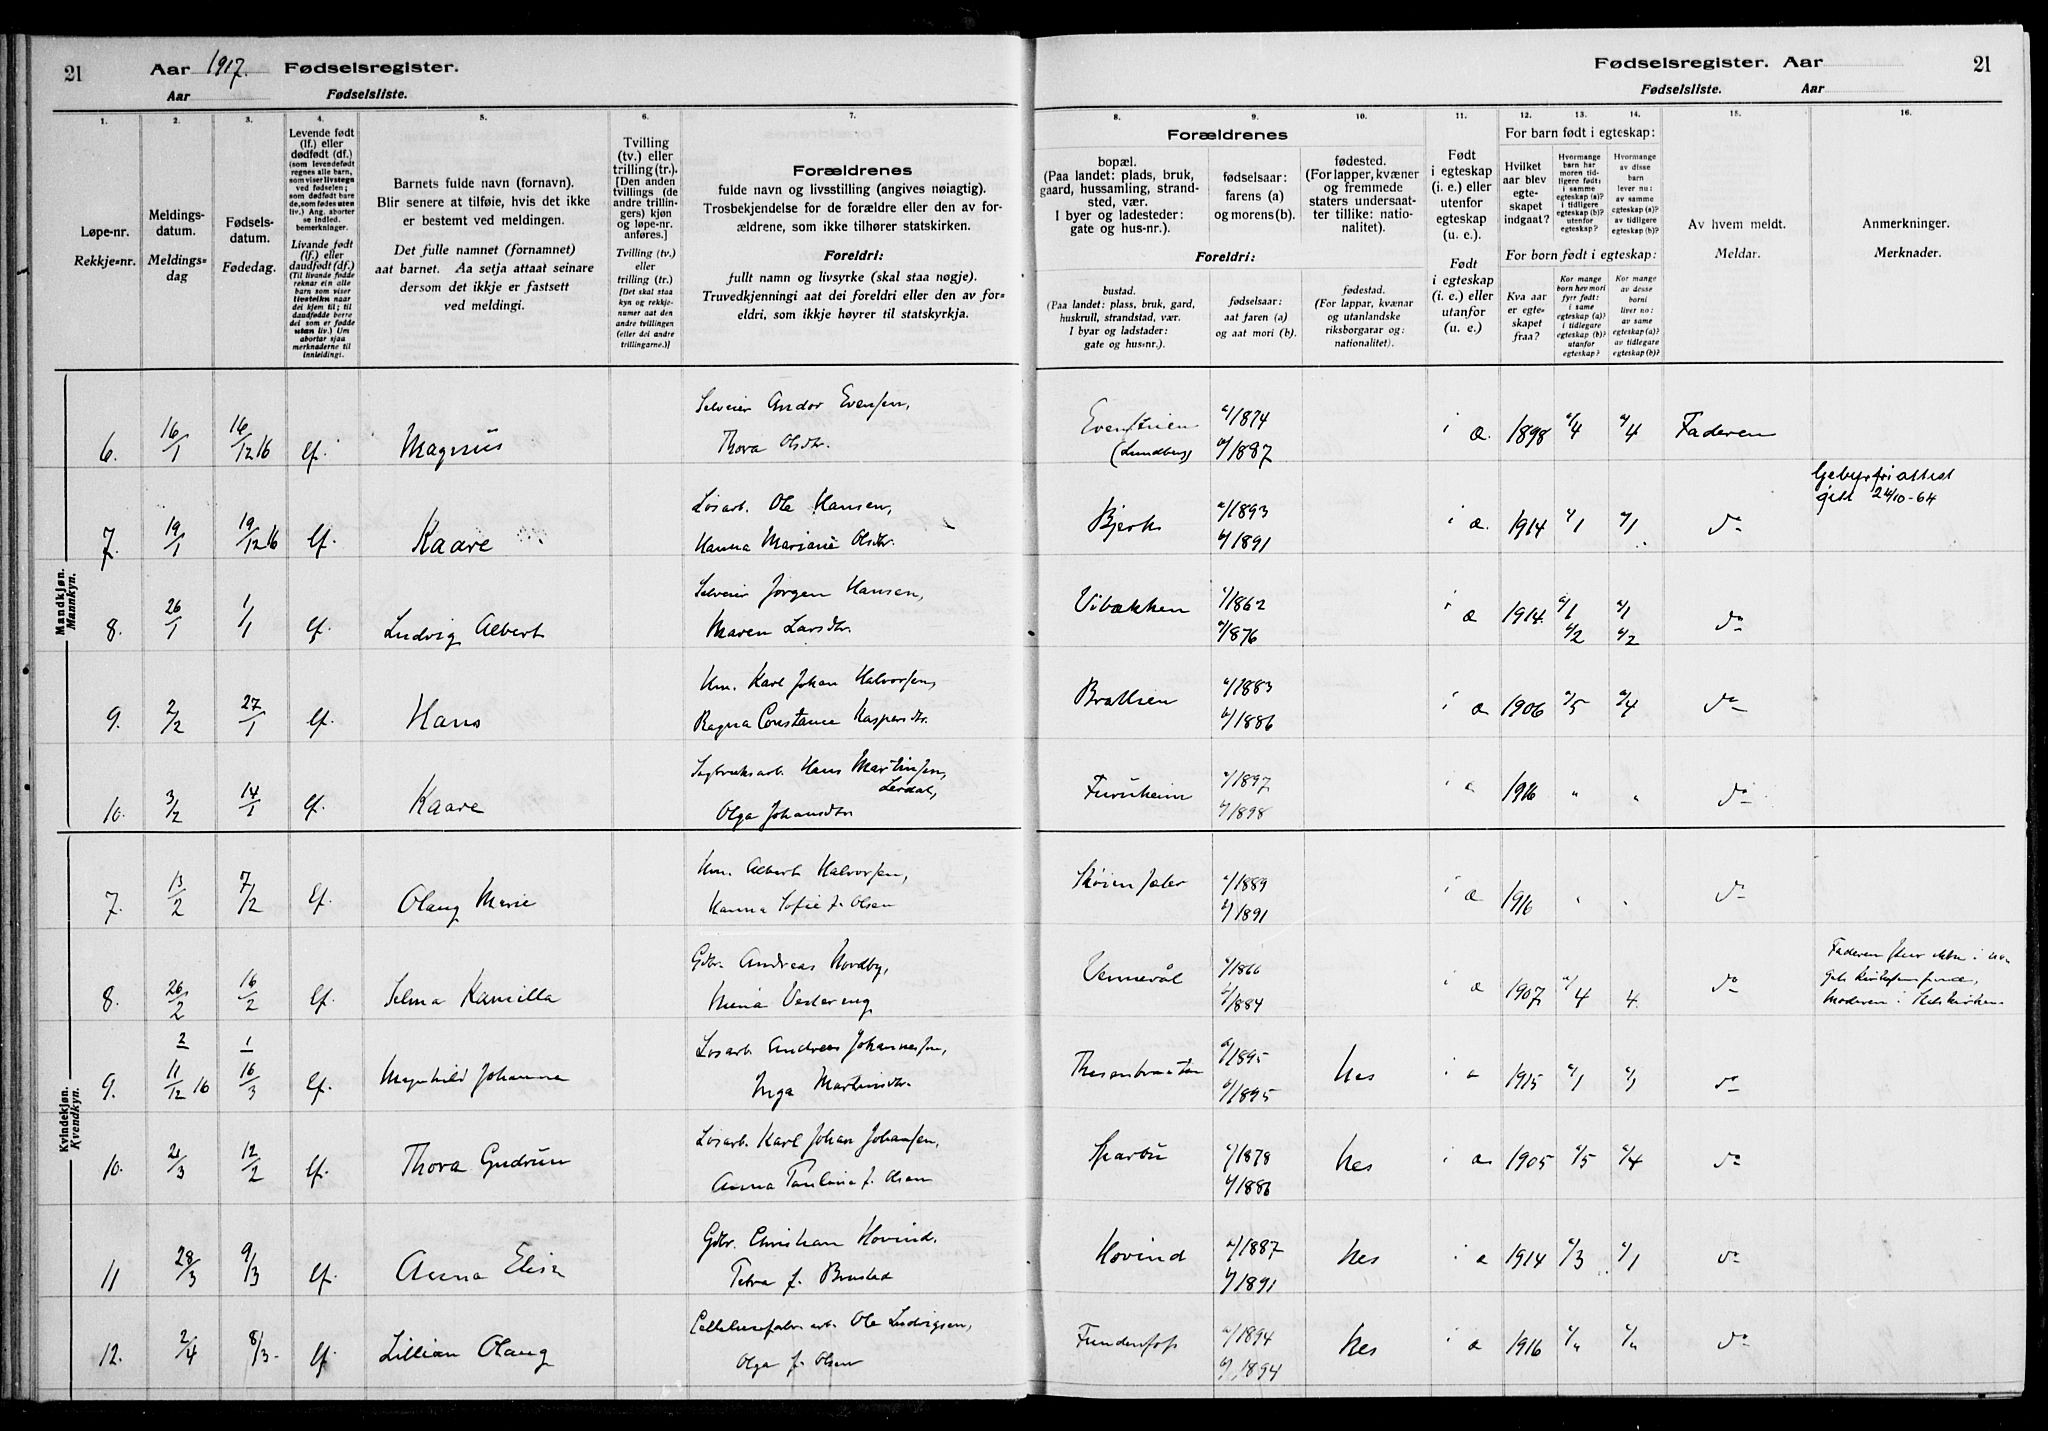 21 Aar 1917. Fødselsregister.
Aar Fødselsliste.
Fødselsregister. Aar 21
Fødselsliste. Aar
1. 2. 3. 4. 5. 6. 7. 8. 9. 10. 11. 12. 13. 14. 15. 16.
Løpe-nr.
Rekkje-nr.
Meldings-
datum.
Meldings-
dag
Fødsels-
datum.
Fødedag.
Levende født
(lf.) eller
dødfødt (df.)
(som levendefødt
regnes alle barn,
som viser livstegn
ved fødselen;
som dødfødt bare
de, som fødes uten
liv.) Ang. aborter
se indled.
bemerkninger.
Livande født
(lf.) eller
daudfødt (df.)
(Til livande fødde
reknar ein alle
barn som viser
livsteikn naar
dei kjem til; til
daudfødde berre
dei som er fødde
utan liv.) Um
abortar sjaa
merknaderne til
innleiding).
Barnets fulde navn (fornavn).
Blir senere at tilføie, hvis det ikke
er bestemt ved meldingen.
Det fulle namnet (fornamnet)
aat barnet. Aa setja attaat seinare
dersom det ikkje er fastsett
ved meldingi.
Tvilling
(tv.) eller
trilling (tr.).
[Den anden
tvillings (de
andre trillin-
gers) kjøn
og løpe-nr.
anføres.]
Tvilling (tv.)
eller
trilling (tr.)
[Det skal staa
kyn og rekkje-
numer aat den
andre tvillingen
(eller dei andre
trillingarne.)]
Forældrenes
fulde navn og livsstilling (angives nøiagtig).
Trosbekjendelse for de forældre eller den av for-
ældrene, som ikke tilhører statskirken.
Foreldri:
fullt namn og livsyrke (skal staa nøgje).
Truvedkjenningi aat dei foreldri eller den av for-
eldri, som ikkje høyrer til statskyrkja.
Forældrenes
bopæl.
(Paa landet: plads, bruk,
gaard, hussamling, strand-
sted, vær.
I byer og ladesteder:
gate og hus-nr.).
fødselsaar:
farens (a)
og morens (b).
fødested.
(For lapper, kvæner
og fremmede
staters undersaat-
ter tillike: natio-
nalitet).
Foreldri:
bustad.
(Paa landet: plass, bruk, gard,
huskrull, strandstad, vær.
I byar og ladstader:
gate og hus-nr.).
fødselsaar:
aat faren (a)
og aat mori (b).
fødestad.
(For lappar, kvænar
og utanlandske
riksborgarar og:
nationalitet).
Født
i egteskap
(i. e.) eller
utenfor
egteskap
(u. e.).
Født
i egteskap
(i. e.) eller
utanfor
(u. e.)
For barn født i egteskap:
Hvilket
aar blev
egte-
skapet
indgaat?
Hvormange
barn har
moren tid-
ligere født:
i samme
egteskap (a)?
i tidligere
egteskap (b)?
utenfor
egteskap?
Hvormange
av disse
barn
lever nu:
av samme
egteskap (a)?
av tidligere
egteskap (b)?
For born født i egteskap:
Kva aar
er egte-
skapet
fraa?
Kor mange
born hev mori
fyrr født:
i same
egteskap (a)?
i tidlegare
egteskap (b)?
utanfor
egteskap?
Kor mange
av desse
borni
liver no:
av same
egteskap (a)?
av tidlegare
egteskap (b)?
Av hvem meldt.
Meldar.
Anmerkninger.
Merknader.
Mandkjøn.
Mannkyn.
6. 16/1 16/12 16 lf. Magnus Selveier Andor Evensen, Thora Olsdtr. Evenstuen (Lundberg) a/1874 b/1887 i æ. 1898 a/4 a/4 Faderen
Gebyrfri attest
gitt 24/10-64
7. 19/1 19/12 16 lf. Kaare Løsarb. Ole Hansen, Hanna Mariane Olsdtr. Bjerke a/1893 b/1891 i æ. 1914 a/1 a/1 do
8. 26/1 1/1 lf. Ludvig Albert Selveier Jørgen Hansen, Maren Larsdtr. Vibækken a/1862 b/1876 i æ 1914 a/1 b/2 a/1 b/2 do
9. 2/2 27/1 lf. Hans Hm. Karl Johan Halvorsen, Ragna Constance Kaspersdtr. Bratlien a/1883 b/1886 i æ 1906 a/5 a/4 do
10. 3/2 14/1 lf. Kaare Sagbruksarb. Hans Martinsen Lerdal, Olga Johansdtr Furuheim a/1897 b/1898 i æ 1916 " " do
Kvindekjøn.
Kvendkyn.
7. 13/2 7/2 lf. Olaug Marie Hm. Albert Halvorsen, Hanna Sofie f. Olsen a/1889 b/1891 i æ 1916 " " do
8. 26/2 16/2 lf. Selma Kamilla Gdbr. Andreas Nordby, Mina Vestereng Vennevål a/1866 b/1884 i æ 1907 a/4 4. do
Faderen
Moderen i Statskirken
9. 2 11/12 16 1 16/3 lf. Magnhild Johanna Løsarb. Andreas Johannessen, Inga Martinsdtr. a/1895 b/1895 Nes i æ 1915 a/1 a/1 do
10. 21/3 12/2 lf. Thora Gudrun Løsarb. Karl Johan Johansen, Anna Paulina f. Olsen Sparbu a/1878 b/1886 Nes i æ 1905 a/5 a/4 do
11 28/3 9/3 lf. Anna Elise Gdbr. Christian Hovind. Petra f. Brustad Hovind a/1887 b/1891 Nes i æ 1914 a/3 a/1 do
12. 2/4 8/3 lf. Lillian Olaug Cellulosefabr. arb. Ole Ludvigsen, Olga f. Olsen Fundenfoss a/1894 b/1894 Nes i æ 1916 a/" a/" do